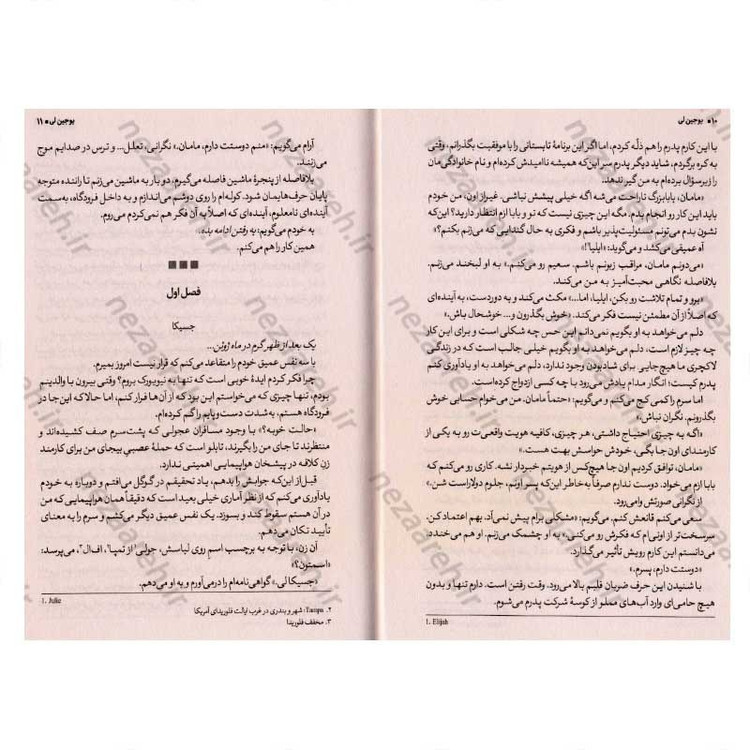 ۱۰ ■ یوجین لی
با این کار پدرم را هم دَلّه کردم، اما اگر این برنامهٔ تابستانی را با موفقیت بگذرانم، وقتی
به کره برگردم، شاید دیگر پدرم سر این‌که همیشه ناامیدش کرده‌ام و نام خانوادگی‌مان
را زیر سؤال برده‌ام به من گیر ندهد.
«مامان، بابابزرگ ناراحت می‌شه اگه خیلی پیشش نباشی. غیر از اون، من خودم
باید این کار رو انجام بدم. مگه این چیزی نیست که تو و بابا ازم انتظار دارید؟ این‌که
نشون بدم می‌تونم مسئولیت‌پذیر باشم و فکری به حال گندایی که می‌زنم بکنم؟»
آه عمیقی می‌کشد و می‌گوید: «ایلیا۱!»
«می‌دونم مامان، مراقب زبونم باشم. سعیم رو می‌کنم.» به او لبخند می‌زنم.
بلافاصله نگاهی محبت‌آمیز به من می‌کند.
«برو و تمام تلاشت رو بکن، ایلیا، اما...» مکث می‌کند و به دوردست، به آینده‌ای
که اصلاً از آن مطمئن نیست فکر می‌کند. «خوش بگذرون و... خوشحال باش.»
دلم می‌خواهد به او بگویم نمی‌دانم این حس چه شکلی است و برای این کار
چه چیز لازم است، دلم می‌خواهد به او بگویم خیلی جالب است که در زندگی
لاکچری ما هیچ‌جایی برای شادبودن وجود ندارد، دلم می‌خواهد به او یادآوری کنم
پدرم کیست؛ انگار مدام یادش می‌رود با چه کسی ازدواج کرده‌است.
اما سرم را کمی کج می‌کنم و می‌گویم: «حتماً مامان. من می‌خوام حسابی خوش
بگذرونم. نگران نباش.»
«اگه به چیزی احتیاج داشتی، هر چیزی، کافیه هویت واقعی‌ت رو به یکی از
کارمندای اون جا بگی. خودش حواسش بهت هست.»
«مامان، توافق کردیم اون جا هیچ‌کس از هویتم خبردار نشه. کاری رو می‌کنم که
بابا ازم می‌خواد. دوست ندارم صرفاً به‌خاطر این‌که پسر اونم، جلوم دولاراست شن.»
از نگرانی صورتش وامی‌رود.
سعی می‌کنم قانعش کنم. می‌گویم: «مشکلی برام پیش نمی‌آد. بهم اعتماد کن.
سرسخت‌تر از اونی‌ام که فکرش رو می‌کنی.» به او چشمک می‌زنم. او هم می‌خندد.
می‌دانستم این کارم رویش تأثیر می‌گذارد.
«دوستت دارم، پسرم.»
با شنیدن این حرف ضربان قلبم بالا می‌رود. وقت رفتن است. دارم تنها و بدون
هیچ حامی‌ای وارد آب‌های مملو از کوسهٔ شرکت پدرم می‌شوم.
1. Elijah
یوجین لی ■ ۱۱
آرام می‌گویم: «منم دوستت دارم، مامان.» نگرانی، تعلل... و ترس در صدایم موج
می‌زنند.
بلافاصله از پنجرهٔ ماشین فاصله می‌گیرم. دو بار به ماشین می‌زنم تا راننده متوجه
پایان حرف‌هایمان شود. کوله‌ام را روی دوشم می‌اندازم و به داخل فرودگاه، به‌سمت
آینده‌ای نامعلوم، آینده‌ای که اصلاً به آن فکر هم نمی‌کردم می‌روم.
به خودم می‌گویم: به رفتن ادامه بده.
همین کار را هم می‌کنم.
■ ■ ■
فصل اول
جسیکا
یک بعد از ظهر گرم در ماه ژوئن...
با سه نفس عمیق خودم را متقاعد می‌کنم که قرار نیست امروز بمیرم.
چرا فکر کردم ایدهٔ خوبی است که تنها به نیویورک بروم؟ وقتی بیرون با والدینم
بودم، تنها چیزی که می‌خواستم این بود که از آن‌ها فرار کنم، اما حالا که این جا در
فرودگاه هستم، به‌شدت دست‌وپایم را گم کرده‌ام.
«حالت خوبه؟» با وجود مسافران عجولی که پشت‌سرم صف کشیده‌اند و
منتظرند تا جای من را بگیرند، تابلو است که حملهٔ عصبی بیجای من برای کارمند
زن کلافه در پیشخان هواپیمایی اهمیتی ندارد.
قبل از این‌که جوابش را بدهم، یاد تحقیقم در گوگل می‌افتم و دوباره به خودم
یادآوری می‌کنم که از نظر آماری خیلی بعید است که دقیقاً همان هواپیمایی که من
در آن هستم سقوط کند و بسوزد. یک نفس عمیق دیگر می‌کشم و سرم را به معنای
تأیید تکان می‌دهم.
آن زن، با توجه به برچسب اسم روی لباسش، جولی۱ از تمپا۲، اف‌ال۳، می‌پرسد:
«اسمتون؟»
«جسیکا لی.» گواهی‌نامه‌ام را درمی‌آورم و به او می‌دهم.
1. Julie
۲. Tampa: شهر و بندری در غرب ایالت فلوریدای آمریکا
۳. مخفف فلوریدا
nezaareh.ir